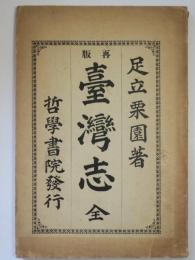 足立栗園著
再版
臺灣志 全
哲學書院發行